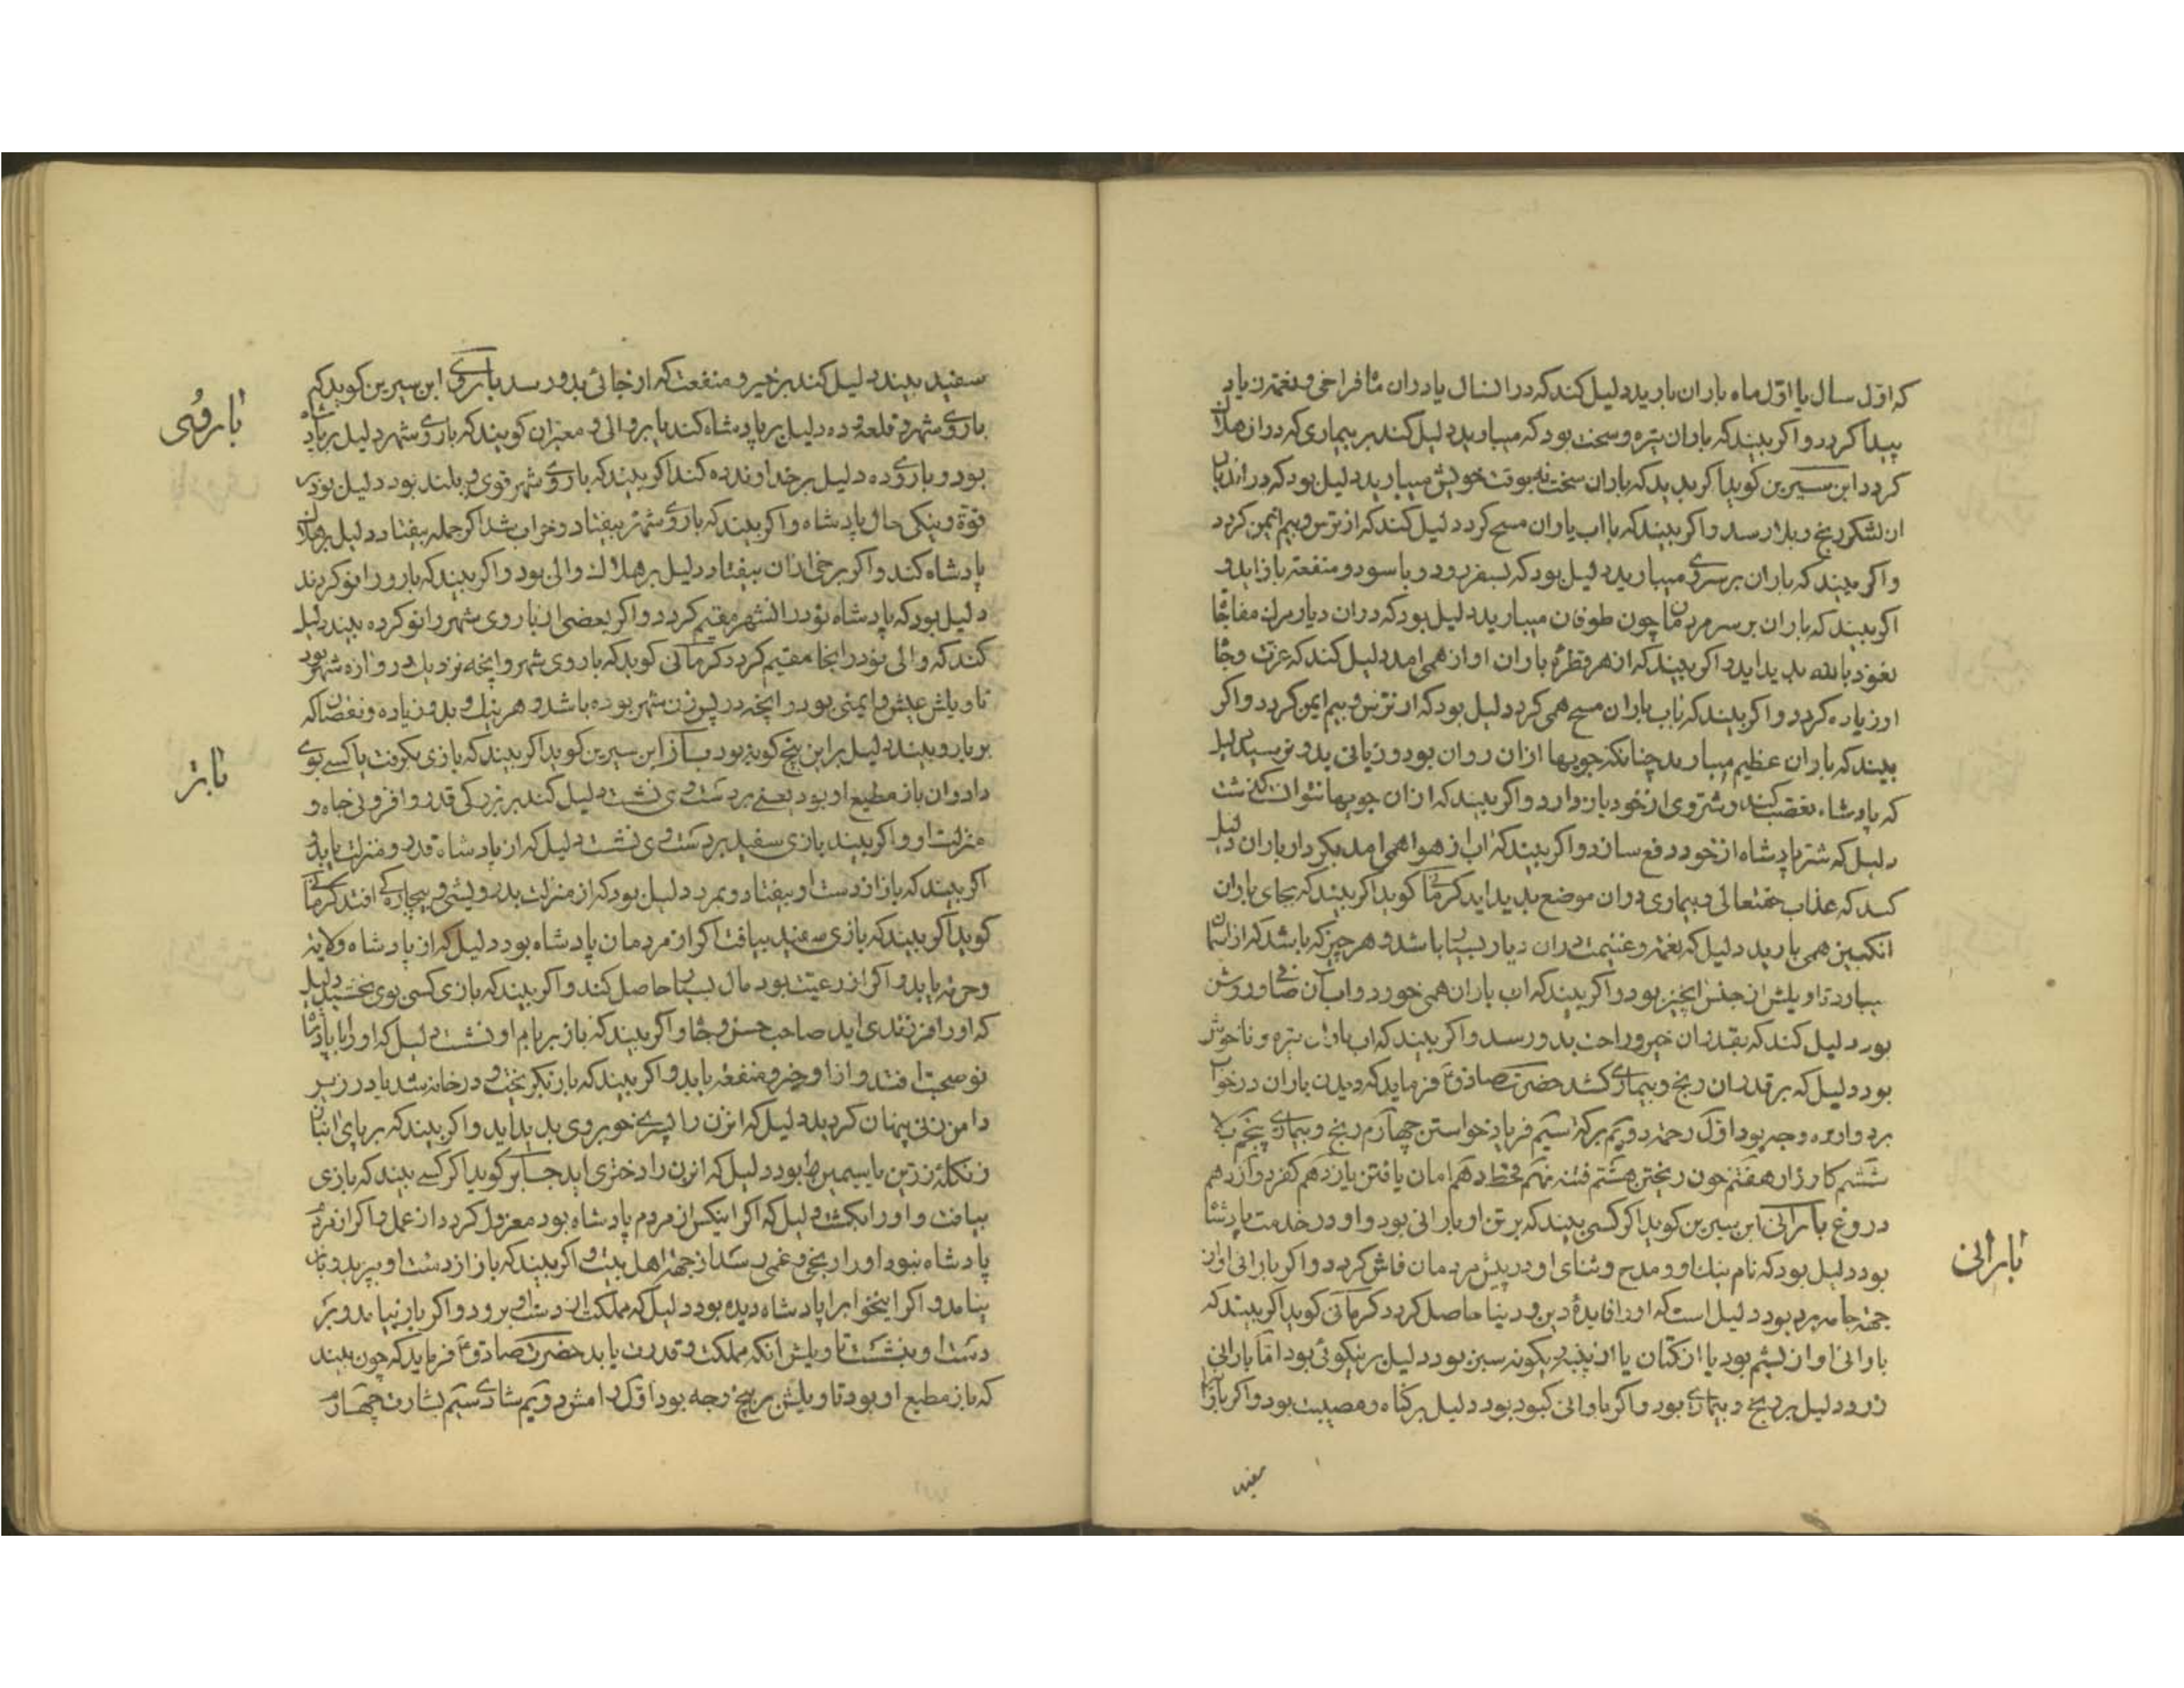 که اول سال یا اول ماه باران بارید دلیل کند که در انسال یا دران ماه فراخی و نعمة زیاد
پیدا کردد و اکر بیند که باران تیره و سخت بود که میبارید دلیل کند بر بیماری که در ان هلاک
کردد ابن سیرین کوید اکر بیند که باران سخت نه بوقت خویش میبارید دلیل بود که در اندیار
ان لشکر رنج و بلا رسد و اکر بیند که با اب باران مسح کرد دلیل کند که از ترس و بیم ایمن کردد
و اکر بیند که باران بر سر وی میبارید دلیل بود که بسفر رود و با سود و منفعة باز اید و
اکر بیند که باران بر سر مردمان چون طوفان میبارید دلیل بود که دران دیار مرک مفاجا
نعوذ بالله پدید اید و اکر بیند که از هر قطره باران اواز همی امد دلیل کند که عزت و جاه
او زیاده کردد و اکر بیند که باب باران مسح همی کرد دلیل بود که از ترس و بیم ایمن کردد و اکر
بیند که باران عظیم میبارید چنانکه جویها ازان روان بود و زیانی بدو نرسید دلیل
که پادشاه تعصب کند و شر وی از خود باز دارد و اکر بیند که ازان جویها نتوانست کذشت
دلیل که شر پادشاه از خود دفع سازد و اکر بیند که اب از هوا همی امد بکردار باران دلیل
کند که عذاب حقتعالی و بیماری دران موضع پدید اید کرمانی کوید اکر بیند که بجای باران
انکبین همی بارید دلیل که نعمة و غنیمت دران دیار بسیار باشد و هر چیز که باشد که از اسمان
ببارد تاویلش از جنس انچیز بود و اکر بیند که اب باران همی خورد و اب ان صافی و روشن
بود دلیل کند که بقدر ان خیر و راحت بدو رسد و اکر بیند که اب باران تیره و ناخوش
بود دلیل که بر قدر ان رنج و بیماری کشد حضرت صادق ع فرماید که دیدن باران در خواب
بر دوازده وجه بود اول رحمة دویم برکة سیم فریاد خواستن چهارم رنج و بیماری پنجم بلا
ششم کارزار هفتم خون ریختن هشتم فتنه نهم قحط دهم امان یافتن یازدهم کفر دوازدهم
دروغ بارانی ابن سیرین کوید اکر کسی بیند که بر تن او بارانی بود و او در خدمت پادشاه
بود دلیل بود که نام نیک او و مدح و ثنای او در پیش مردمان فاش کردد و اکر بارانی او از
جهة جامه برد بود دلیل است که او را فایدۀ دین و دنیا حاصل کردد کرمانی کوید اکر بیند که
بارانی او از پشم بود یا از کتان یا از پنبه و بکونه سبز بود دلیل بر نیکوئی بود اما بارانی
زرد دلیل بر رنج و بیماری بود و اکر بارانی کبود بود دلیل بر کناه و مصیبت بود و اکر
بارانی
سفید
سفید بیند دلیل کند بر خیر و منفعت که از جائی بدو رسد باروی ابن سیرین کوید که
باروی شهر و قلعه و ده دلیل بر پادشاه کند یا بر والی و معبران کویند که باروی شهر دلیل بر پادشاه
بود و باروی ده دلیل بر خداوند ده کند اکر بیند که باروی شهر قوی و بلند بود دلیل بود بر
قوة و نیکی حال پادشاه و اکر بیند که باروی شهر بیفتاد و خراب شد اکر جمله بیفتاد دلیل بر هلاک
پادشاه کند و اکر برخی ازان بیفتاد دلیل بر هلاک والی بود و اکر بیند که بارو را نو کردند
دلیل بود که پادشاه نو در انشهر مقیم کردد و اکر بعضی از باروی شهر را نو کرده بیند دلیل
کند که والی نو در انجا مقیم کردد کرمانی کوید که باروی شهر و انچه نزدیک دروازه شهر بود
تاویلش عیش و ایمنی بود و انچه در پس شهر بوده باشد و هر نیک و بد و زیاده و نقصان که
بر بارو بیند دلیل بر این پنج کونه بود باز ابن سیرین کوید اکر بیند که بازی بکرفت یا کسی بوی
داد و ان باز مطیع او بود یعنی بر دست وی نشست دلیل کند بر بزرکی قدر و افزونی جاه و
منزلت او و اکر بیند بازی سفید بر دست وی نشست دلیل که از پادشاه قدر و منزلت یابد و
اکر بیند که باز از دست او بیفتاد و بمرد دلیل بود که از منزلت بدرویشی و بیچارکی افتد کرمانی
کوید اکر بیند که بازی سفید بیافت اکر از مردمان پادشاه بود دلیل که از پادشاه ولایة
و حرمة یابد و اکر از رعیت بود مال بسیار حاصل کند و اکر بیند که بازی کسی بوی بخشید دلیل
که او را فرزندی اید صاحب حسن و جاه و اکر بیند که باز بر بام او نشست دلیل که او را با پادشاه
نو صحبت افتد و از او خیر و منفعة یابد و اکر بیند که باز بکریخت و در خانه شد یا در زیر
دامن زنی پنهان کردید دلیل که انزن را پسری خوبروی پدید اید و اکر بیند که بر پای ان باز
زنکله زرین یا سیمین بود دلیل که انزن را دختری اید جابر کوید اکر کسی بیند که بازی
بیافت و او را بکشت دلیل که اکر اینکس از مردم پادشاه بود معزول کردد از عمل و اکر از مردم
پادشاه نبود او را رنجی و غمی رسد از جهة اهل بیت و اکر بیند که باز از دست او بپرید و باز
نیامد و اکر اینخواب را پادشاه دیده بود دلیل که مملکت از دست او برود و اکر باز بیامد و بر
دست او بنشست تاویلش انکه مملکت و قدرت یابد حضرت صادق ع فرماید که چون بیند
که باز مطیع او بود تاویلش بر پنج وجه بود اول رامش دویم شادی سیم بشارت چهارم
باروی
باز